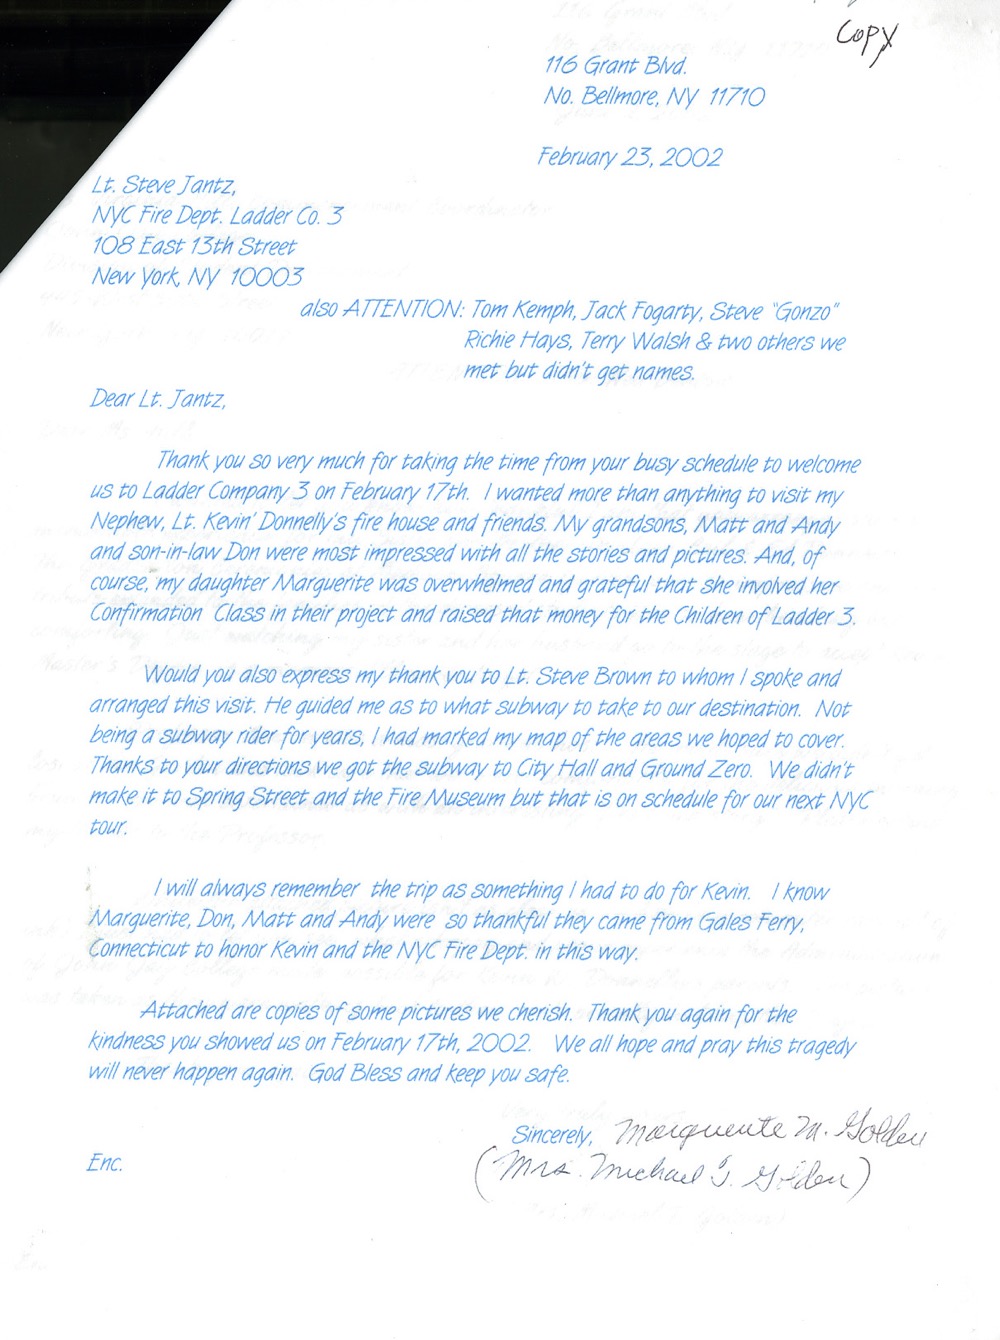 Copy
116 Grant Blvd.
No. Bellmore, NY 11710
February 23, 2002
Lt. Steve Jantz,
NYC Fire Dept. Ladder Co. 3
108 East 13th Street
New York, NY 10003
also ATTENTION: Tom Kemph, Jack Fogarty, Steve "Gonzo"
Richie Hays, Terry Walsh & two others we
met but didn't get names.
Dear Lt. Jantz,
Thank you so very much for taking the time from your busy schedule to welcome
us to Ladder Company 3 on February 17th. I wanted more than anything to visit my
Nephew, Lt. Kevin' Donnelly's fire house and friends. My grandsons, Matt and Andy
and son-in-law Don were most impressed with all the stories and pictures. And, of
course, my daughter Marguerite was overwhelmed and grateful that she involved her
Confirmation Class in their project and raised that money for the Children of Ladder 3.
Would you also express my thank you to Lt. Steve Brown to whom I spoke and
arranged this visit. He guided me as to what subway to take to our destination. Not
being a subway rider for years, I had marked my map of the areas we hoped to cover.
Thanks to your directions we got the subway to City Hall and Ground Zero. We didn't
make it to Spring Street and the Fire Museum but that is on schedule for our next NYC
tour.
I will always remember the trip as something I had to do for Kevin. I know
Marguerite, Don, Matt and Andy were so thankful they came from Gales Ferry,
Connecticut to honor Kevin and the NYC Fire Dept. in this way.
Attached are copies of some pictures we cherish. Thank you again for the
kindness you showed us on February 17th, 2002. We all hope and pray this tragedy
will never happen again. God Bless and keep you safe.
Sincerely, Marguerite M. Golden
(Mrs. Michael J. Golden)
Enc.